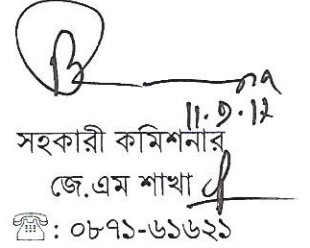 11.9.12
সহকারী কমিশনার
জে.এম শাখা
☎: ০৮৭১-৬১৬২১